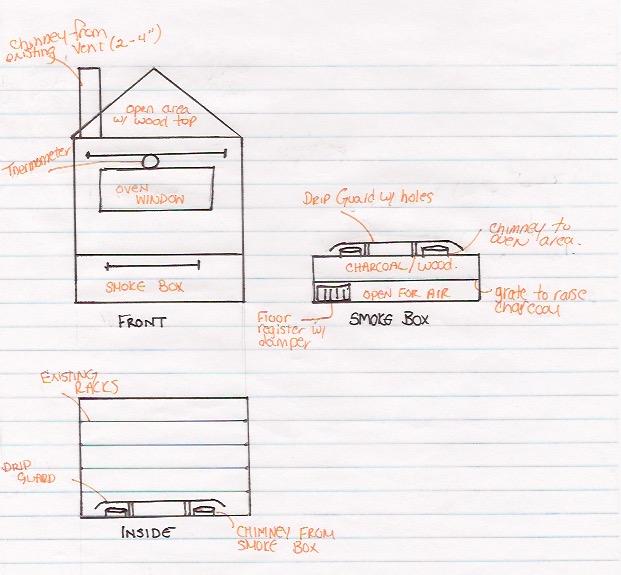 chimney from
existing vent (2-4")
open area
w/ wood top
Thermometer
OVEN
WINDOW
SMOKE BOX
FRONT
DRIP GUARD w/ holes
chimney to
oven area.
CHARCOAL/WOOD.
OPEN FOR AIR
grate to raise
charcoal
Floor
register w/
damper
SMOKE BOX
EXISTING
RACKS
DRIP
GUARD
INSIDE
CHIMNEY FROM
SMOKE BOX